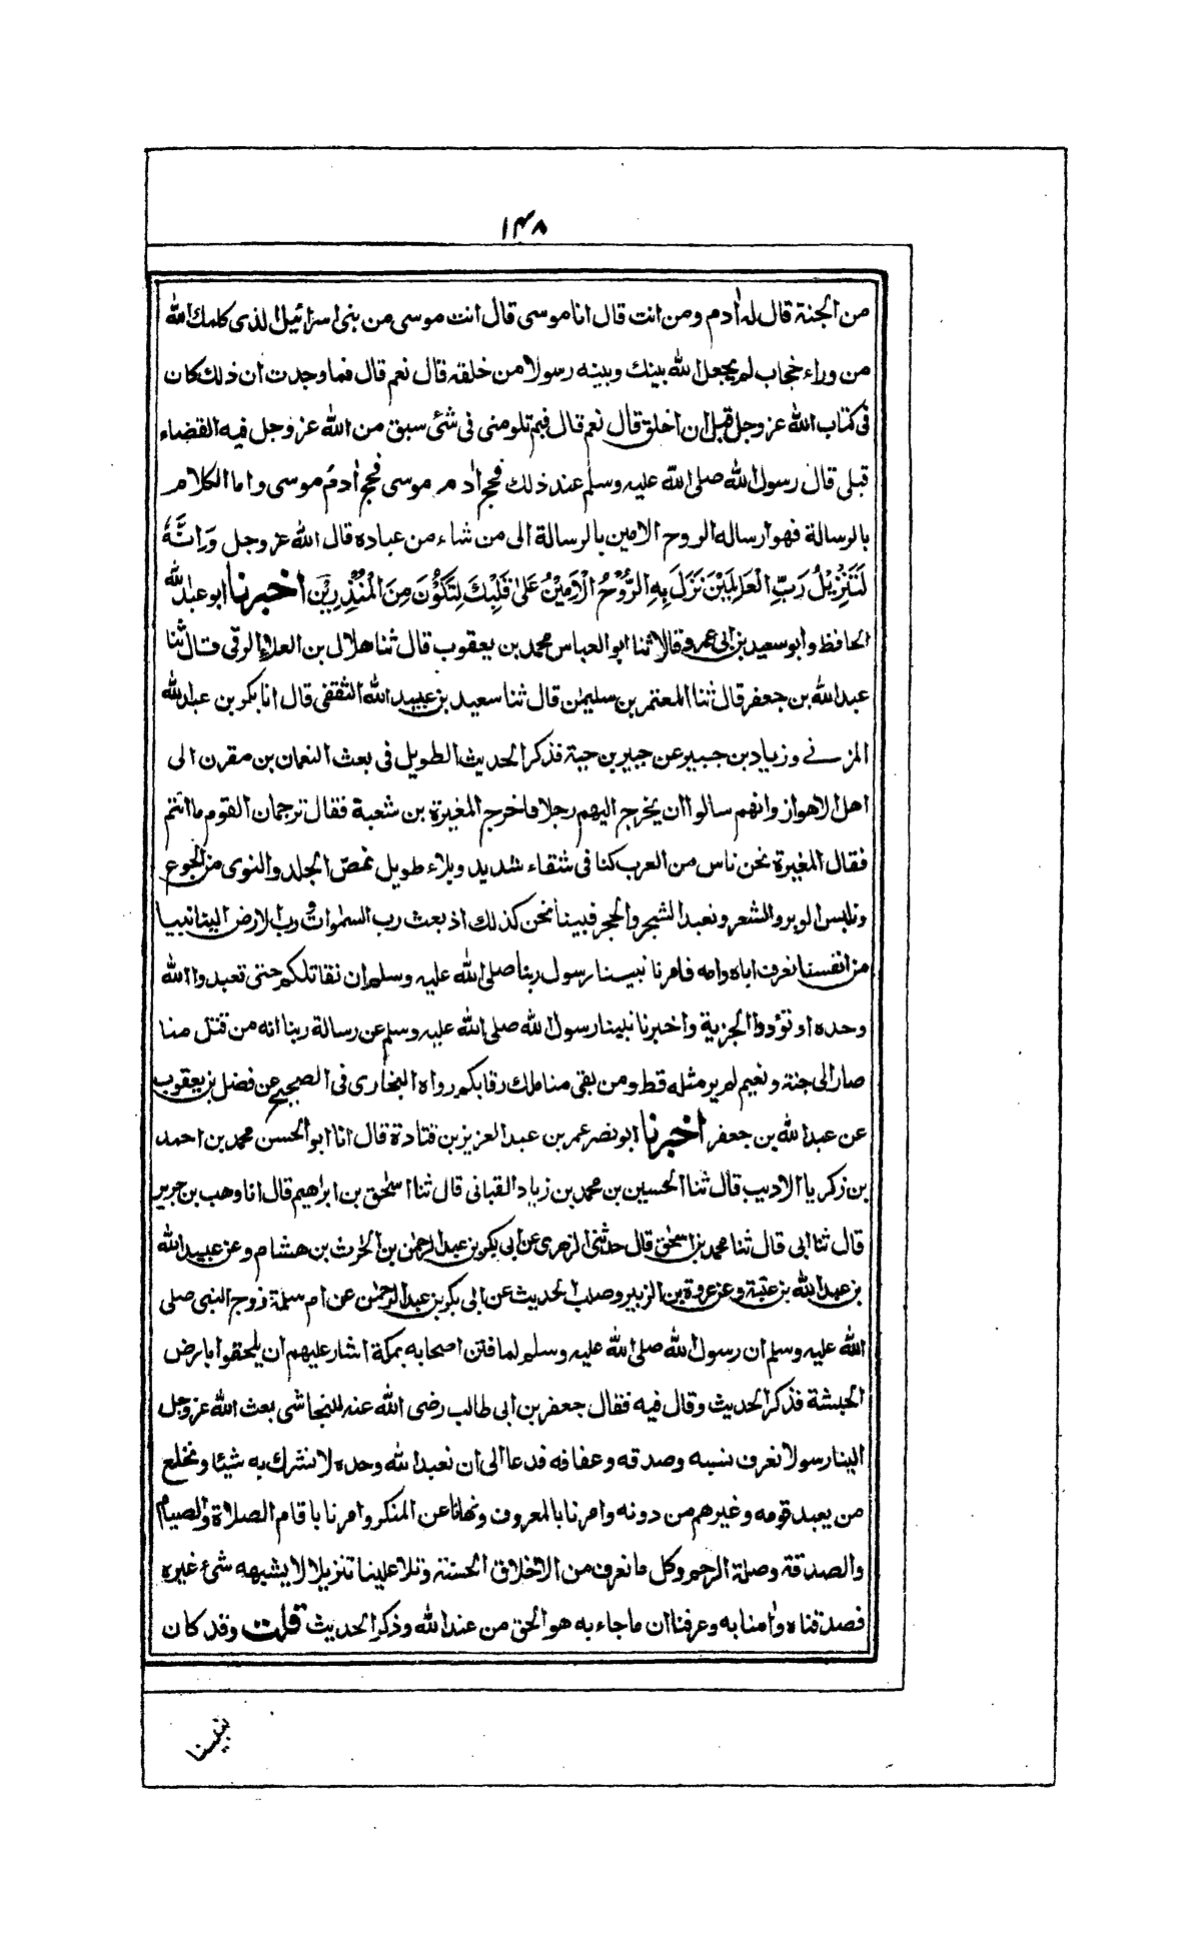 ١٤٨
من الجنة قال له اٰدم ومن انت قال انا موسى قال انت موسى من بنى اسرائيل الذى كلمك الله
من وراء حجاب لم يجعل الله بينك وبينه رسولا من خلقه قال نعم قال فما وجدت ان ذلك كان
فى كتاب الله عز وجل قبل ان اخلق قال نعم قال فبم تلومنى فى شئ سبق من الله عز وجل فيه القضاء
قبلى قال رسول الله صلى الله عليه وسلم عند ذلك فحج اٰدم موسى فحج اٰدمُ موسى واما الكلام
بالرسالة فهو ارساله الروح الامين بالرسالة الى من شاء من عباده قال الله عز وجل وَاِنَّهٗ
لَتَنْزِيْلُ رَبِّ الْعٰلَمِيْنَ نَزَلَ بِهِ الرُّوْحُ الْاَمِيْنُ عَلٰى قَلْبِكَ لِتَكُوْنَ مِنَ الْمُنْذِرِيْنَ اخبرنا ابو عبد الله
الحافظ وابو سعيد بن ابى عمرو قالا ثنا ابو العباس محمد بن يعقوب قال ثنا هلال بن العلاء الرقى قال ثنا
عبد الله بن جعفر قال ثنا المعتمر بن سليمٰن قال ثنا سعيد بن عبيد الله الثقفى قال انا بكر بن عبد الله
المزنے وزياد بن جبير عن جبير بن حية فذكر الحديث الطويل فى بعث النعمان بن مقرن الى
اهل الاهواز وانهم سالوا ان يخرج اليهم رجلا فاخرج المغيرة بن شعبة فقال ترجمان القوم ما انتم
فقال المغيرة نحن ناس من العرب كنا فى شقاء شديد وبلاء طويل نمصّ الجلد والنوى من الجوع
ونلبس الوبر والشعر ونعبد الشجر والحجر فبينا نحن كذلك اذ بعث رب السمٰوات ورب الارض الينا نبيا
من انفسنا نعرف اباه وامه فامرنا نبينا رسول ربنا صلى الله عليه وسلم ان نقاتلكم حتى تعبدوا الله
وحده او تؤدوا الجزية واخبرنا نبينا رسول الله صلى الله عليه وسلم عن رسالة ربنا انه من قتل منا
صار الى جنة ونعيم لم ير مثله قط ومن بقى منا ملك رقابكم رواه البخارى فى الصحيح عن فضل بن يعقوب
عن عبد الله بن جعفر اخبرنا ابو نصر عمر بن عبد العزيز بن قتادة قال انا ابو الحسن محمد بن احمد
بن زكريا الاديب قال ثنا الحسين بن محمد بن زياد القبانى قال ثنا اسحٰق بن ابراهيم قال انا وهب بن جرير
قال ثنا ابى قال ثنا محمد بن اسحٰق قال حدثنى الزهرى عن ابى بكر بن عبد الرحمٰن بن الحرث بن هشام وعن عبيد الله
بن عبد الله بن عتبة وعن عروة بن الزبير وصلب الحديث عن ابى بكر بن عبد الرحمٰن عن ام سلمة زوج النبى صلى
الله عليه وسلم ان رسول الله صلى الله عليه وسلم لما فتن اصحابه بمكة اشار عليهم ان يلحقوا بارض
الحبشة فذكر الحديث وقال فيه فقال جعفر بن ابى طالب رضى الله عنه للنجاشى بعث الله عز وجل
الينا رسولا نعرف نسبه وصدقه وعفافه فدعا الى ان نعبد الله وحده لا نشرك به شيئا ونخلع
من يعبد قومه وغيرهم من دونه وامرنا بالمعروف ونهانا عن المنكر وامرنا باقام الصلاة والصيام
والصدقة وصلة الرحم وكل ما نعرف من الاخلاق الحسنة وتلا علينا تنزيلا لا يشبهه شئ غيره
فصدقناه واٰمنا به وعرفنا ان ما جاء به هو الحق من عند الله وذكر الحديث قلت وقد كان
نبينا